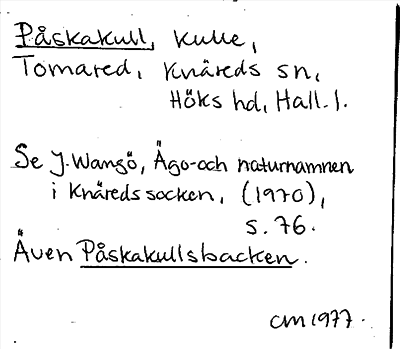 Påskakull, kulle,
Tomared, Knäreds sn,
Höks hd, Hall. l.
Se J. Wangö, Ägo- och naturnamnen
i Knäreds socken, (1970),
s. 76.
Även Påskakullsbacken.
CM 1977.